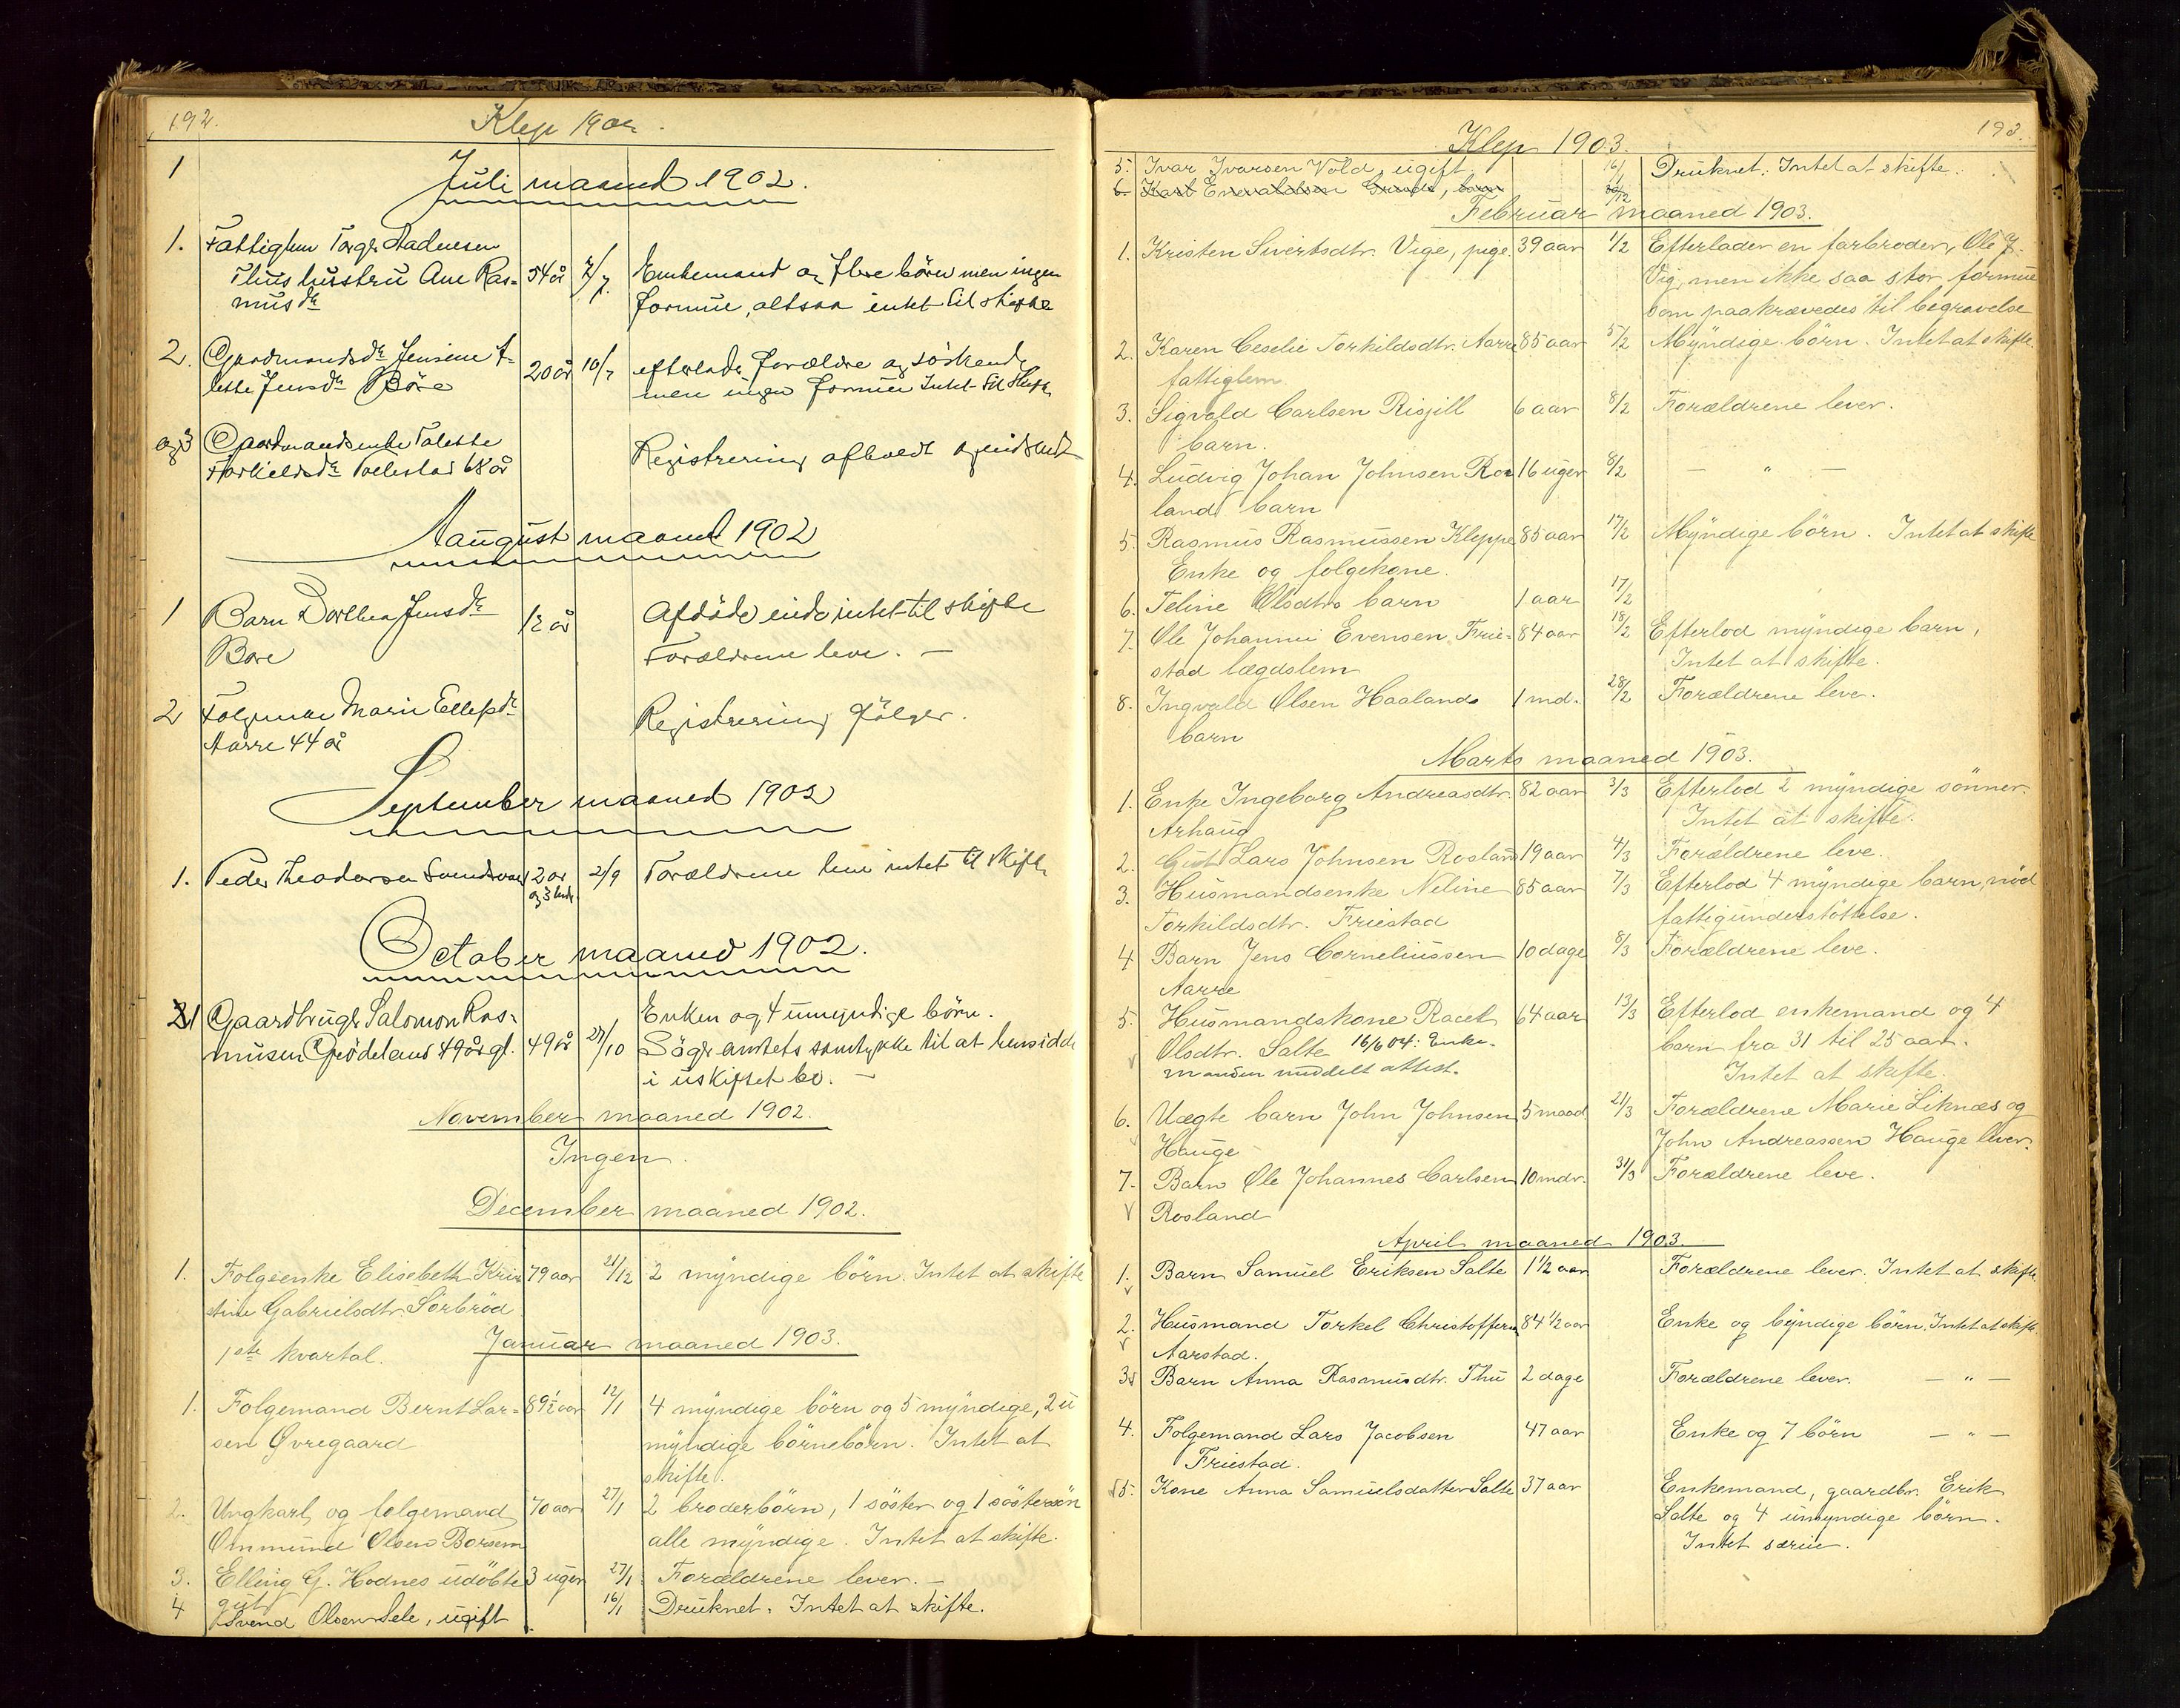 192.
Klep 1902.
1
Juli maaned 1902.
1. Fattiglem Torger Aadnesen
Thus hustru Ane Ras- 54 år 7/7. Enkemand og flere börn men ingen
musdr formue, altsaa intet til skifte
2. Gaardmandsdr Jensine A- 20 år 10/7 efterlader forældre og söskende
lette Jensdr Böre men ingen formue Intet til skifte
og 3 Gaardmandsenke Talette Registrering afholdt og indsendt
Torkieldsdr 68 år
Aaugust maaned 1902
1 Barn Dorthea Jensdr 1/2 år Afdöde eiede intet til skifte
Bore Forældrene leve. —
2 Marie Ellefsdr Registrering fölger.
Aarre 44 år
September maaned 1902
1. Peder Theodorsen 2 år 2/9 Forældrene leve intet til skifte
October maaned 1902.
1 Gaardbruger Salomon Ras- Enken og 4 umyndige börn.
musen Grödeland 49 år gl. 49 år 27/10 Söger amtets samtykke til at hensidde
i uskiftet bo. —
November maaned 1902.
Ingen.
December maaned 1902.
1. Folgeenke Elisebeth Kris 79 aar 21/12 2 myndige börn. Intet at skifte
stine Gabrielsdtr. Sörbröd
Januar maaned 1903.
1ste kvartal.
1. Folgemand Bernt Lar- 89 1/2 aar 12/1 4 myndige börn og 5 myndige, 2 u
sen Øvregaard myndige börnebörn. Intet at
skifte.
2. Ungkarl og folgemand 70 aar 27/1 2 broderbörn, 1 söster og 1 söstersön
Ommund Olsen Borsem alle myndige. Intet at skifte.
3. Elling G. Hodnes udöbte 3 uger 27/1 Forældrene lever. —
gut
4 Svend Olsen Sele, ugift 16/1 Druknet. Intet at skifte.
193.
Klep 1903.
5. Ivar Ivarsen Vold, ugift 16/1 Druknet. Intet at skifte.
6. Karl Enevaldsen Grude, barn 30/12
Februar maaned 1903.
1. Kristen Sivertsdtr. Vige, pige. 39 aar 1/2 Efterlader en farbroder, Ole J.
Vig, men ikke saa stor formue
som paakrævedes til begravelse
2. Karen Ceselie Torkildsdtr. Aarre 85 aar 5/2 Myndige börn. Intet at skifte.
fattiglem
3. Sigvald Carlsen Risjill 6 aar 8/2 Forældrene lever.
barn.
4. Ludvig Johan Johnsen Ros 16 uger 8/2 — " —
land barn
5. Rasmus Rasmussen Kleppe 85 aar 17/2 Myndige börn. Intet at skifte
Enke og folgekone.
6. Teline Olsdtr. barn 1 aar 17/2
7. Ole Johannes Evensen Frie- 84 aar 18/2 Efterlod myndige barn,
stad lægdslem Intet at skifte.
8. Ingvald Olsen Haaland 1 md. 28/2 Forældrene leve.
barn
Marts maaned 1903.
1. Enke Ingeborg Andreasdtr. 82 aar 3/3 Efterlod 2 myndige sönner.
Arhaug Intet at skifte.
2. Gut Lars Johnsen Rosland 19 aar 4/3 Forældrene leve.
3. Husmandsenke Neline 85 aar 7/3 Efterlod 4 myndige barn, nöd
Torkildsdtr. Friestad fattigunderstöttelse.
4 Barn Jens Corneliussen 10 dage 8/3 Forældrene leve.
Aarre
5. Husmandskone Racel 64 aar 13/3 Efterlod enkemand og 4
Olsdtr. Salte 16/6 04: Enke- barn fra 31 til 25 aar.
manden meddelt attest. Intet at skifte.
6. Uægte barn John Johnsen 5 maad. 21/3 Forældrene Marie Liknæs og
Hauge John Andreassen Hauge lever.
7. Barn Ole Johannes Carlsen 10 mdr. 31/3 Forældrene leve.
Rosland
April maaned 1903.
1. Barn Samuel Eriksen Salte 1 1/2 aar Forældrene lever. Intet at skifte
2. Husmand Torkel Christoffersen 84 1/2 aar Enke og byndige börn. Intet at skifte.
Aarstad.
3. Barn Anna Rasmusdtr. Thu 2 dage Forældrene lever. — " —
4. Folgemand Lars Jacobsen 47 aar Enke og 7 börn — " —
Friestad.
5. Kone Anna Samuelsdatter Salte 37 aar Enkemand, gaardbr. Erik
Salte og 4 umyndige börn.
Intet særeie.